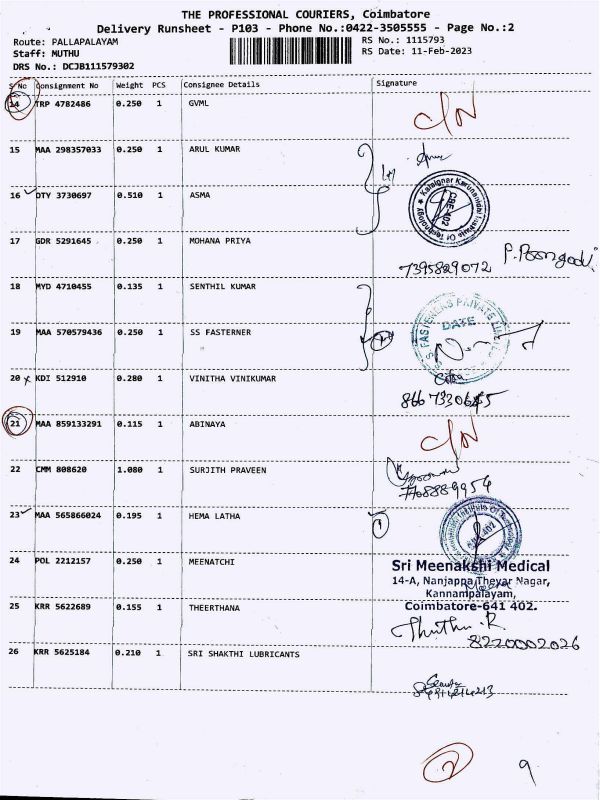 THE PROFESSIONAL COURIERS, Coimbatore
Delivery Runsheet - P103 - Phone No.:0422-3505555 - Page No.:2
Route: PALLAPALAYAM
RS No.: 1115793
Staff: MUTHU
RS Date: 11-Feb-2023
DRS No.: DCJB111579302
S No Consignment No Weight PCS Consignee Details Signature
14 TRP 4782486 0.250 1 GVML C/N
15 MAA 298357033 0.250 1 ARUL KUMAR
16 DTY 3730697 0.510 1 ASMA
Kalaignar Karunanidhi Institute Of Technology
CBE-402
17 GDR 5291645 0.250 1 MOHANA PRIYA P.Poongodi
7395829072
18 MYD 4710455 0.135 1 SENTHIL KUMAR
19 MAA 570579436 0.250 1 SS FASTERNER
S.S. FASTENERS PRIVATE LIMITED
DATE
20 x KDI 512910 0.280 1 VINITHA VINIKUMAR
8667330645
21 MAA 859133291 0.115 1 ABINAYA C/N
22 CMM 808620 1.080 1 SURJITH PRAVEEN
7708889954
23 MAA 565866024 0.195 1 HEMA LATHA 1
Institute Of Technology
24 POL 2212157 0.250 1 MEENATCHI
Sri Meenakshi Medical
14-A, Nanjappa Thevar Nagar,
Kannampalayam,
Coimbatore-641 402.
25 KRR 5622689 0.155 1 THEERTHANA
8220002026
26 KRR 5625184 0.210 1 SRI SHAKTHI LUBRICANTS
2 9